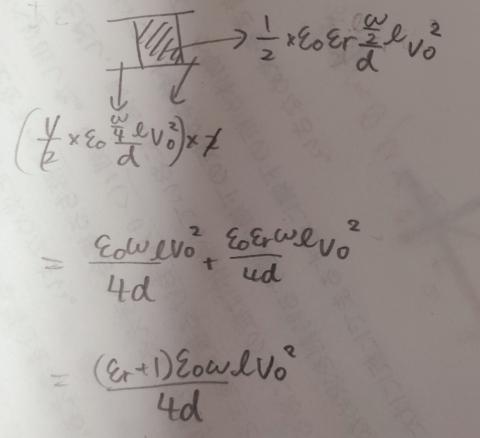 1/2 × ε0 εr (w/2)/d l V0^2
(1/2 × ε0 (w/4)/d l V0^2) × 2
= ε0wlV0^2/4d + ε0εrwl/4d V0^2
= (εr+1)ε0wlV0^2/4d